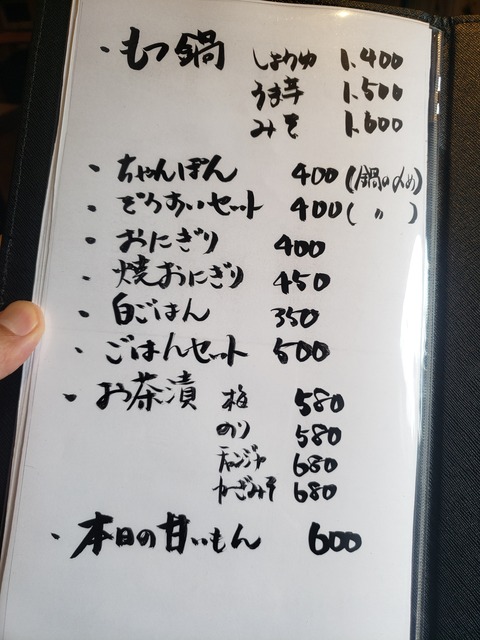 ・もつ鍋 しょうゆ 1,400
うま辛 1,500
みそ 1,600
・ちゃんぽん 400(鍋の〆め)
・ぞうすいセット 400( 〃 )
・おにぎり 400
・焼おにぎり 450
・白ごはん 350
・ごはんセット 500
・お茶漬 梅 580
のり 580
チャンジャ 680
680
・本日の甘いもん 600